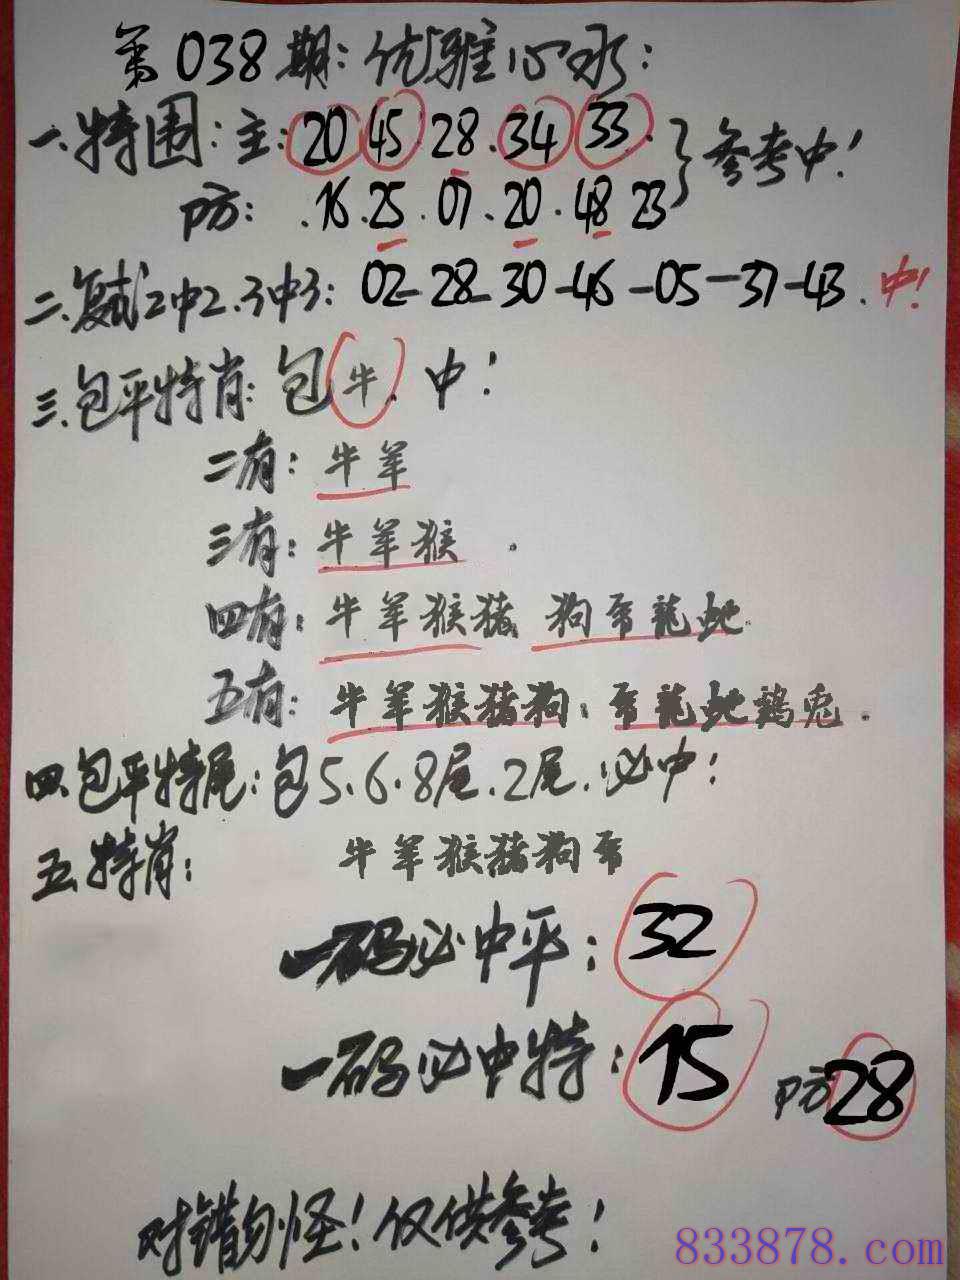 第038期:优雅心水:
一.特围:主:20.45.28.34.33.}参考中!
防:.16.25.07.20.48 23
二.复式2中2.3中3:02-28-30-46-05-37-43.中!
三.包平特肖:包牛.中!
二有:牛羊
三有:牛羊猴.
四有:牛羊猪猴 狗马龍蛇
五有:牛羊猴猪狗:马龍蛇鷄兎.
四.包平特尾:包5.6.8尾.2尾.必中!
五.特肖: 牛羊猴猪狗马
一码必中平:32
一码必中特:15 防28
对错勿怪!仅供参考!
833878.com